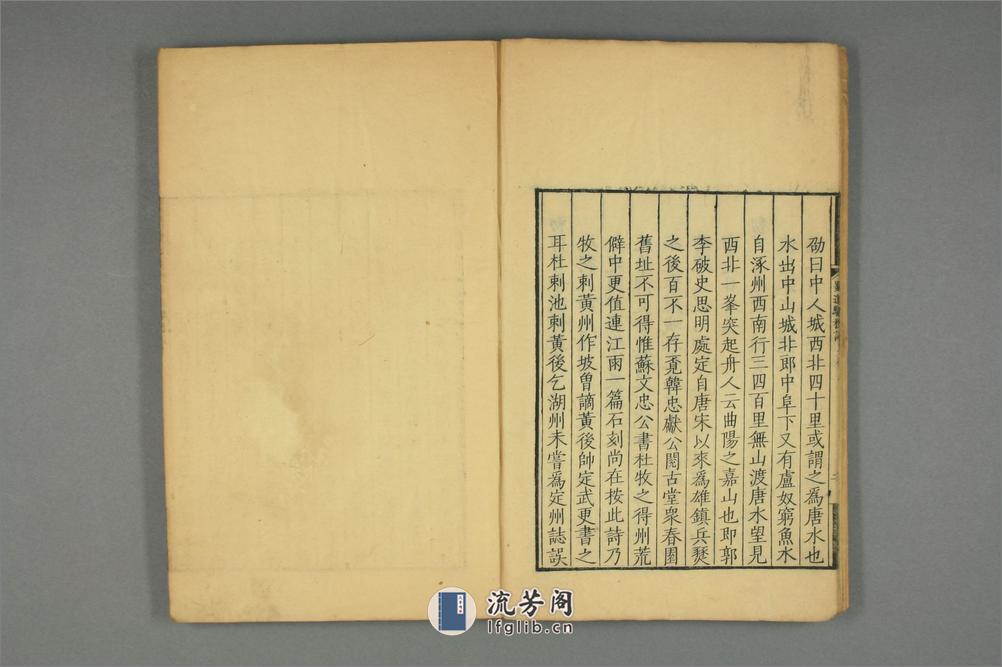 劭曰中人城西北四十里或謂之爲唐水也
水出中山城北郎中阜下又有盧奴窮魚水
自涿州西南行三四百里無山渡唐水望見
西北一峯突起舟人云曲陽之嘉山也即郭
李破史思明處定自唐宋以來爲雄鎮兵燹
之後百不一存覓韓忠獻公閱古堂衆春園
舊址不可得惟蘇文忠公書杜牧之得州荒
僻中更值連江雨一篇石刻尚在按此詩乃
牧之刺黃州作坡曽謫黃後帥定武更書之
耳杜刺池刺黃後乞湖州未嘗爲定州誌誤
流芳阁
lfglib.cn